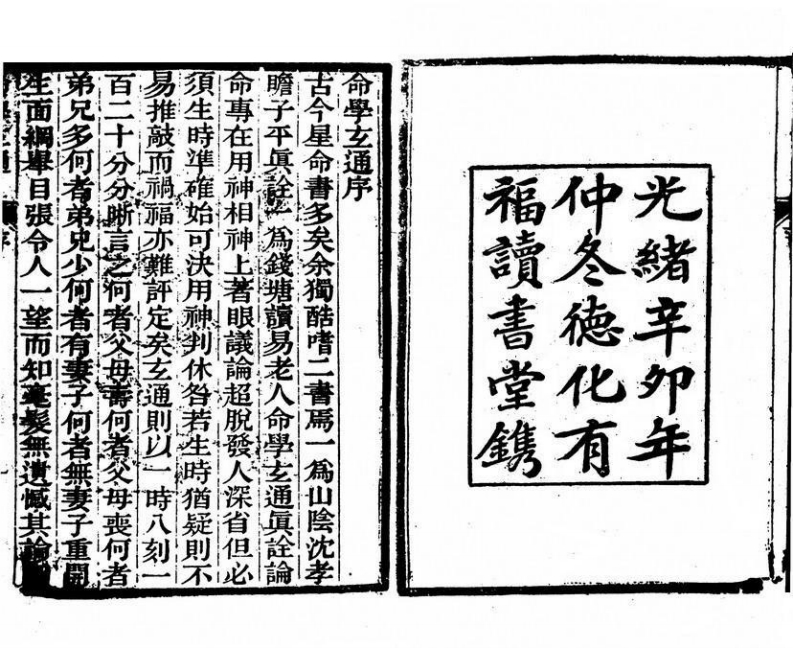 光緒辛卯年
仲冬德化有
福讀書堂鐫
命學玄通序
古今星命書多矣余獨酷嗜二書焉一爲山陰沈孝
瞻子平眞詮一爲錢塘讀易老人命學玄通眞詮論
命專在用神相神上著眼議論超脫發人深省但必
須生時準確始可決用神判休咎若生時猶疑則不
易推敲而禍福亦難評定矣玄通則以一時八刻一
百二十分分晰言之何者父母壽何者父母喪何者
弟兄多何者弟兄少何者有妻子何者無妻子重開
生面綱舉目張令人一望而知毫髮無遺憾其論